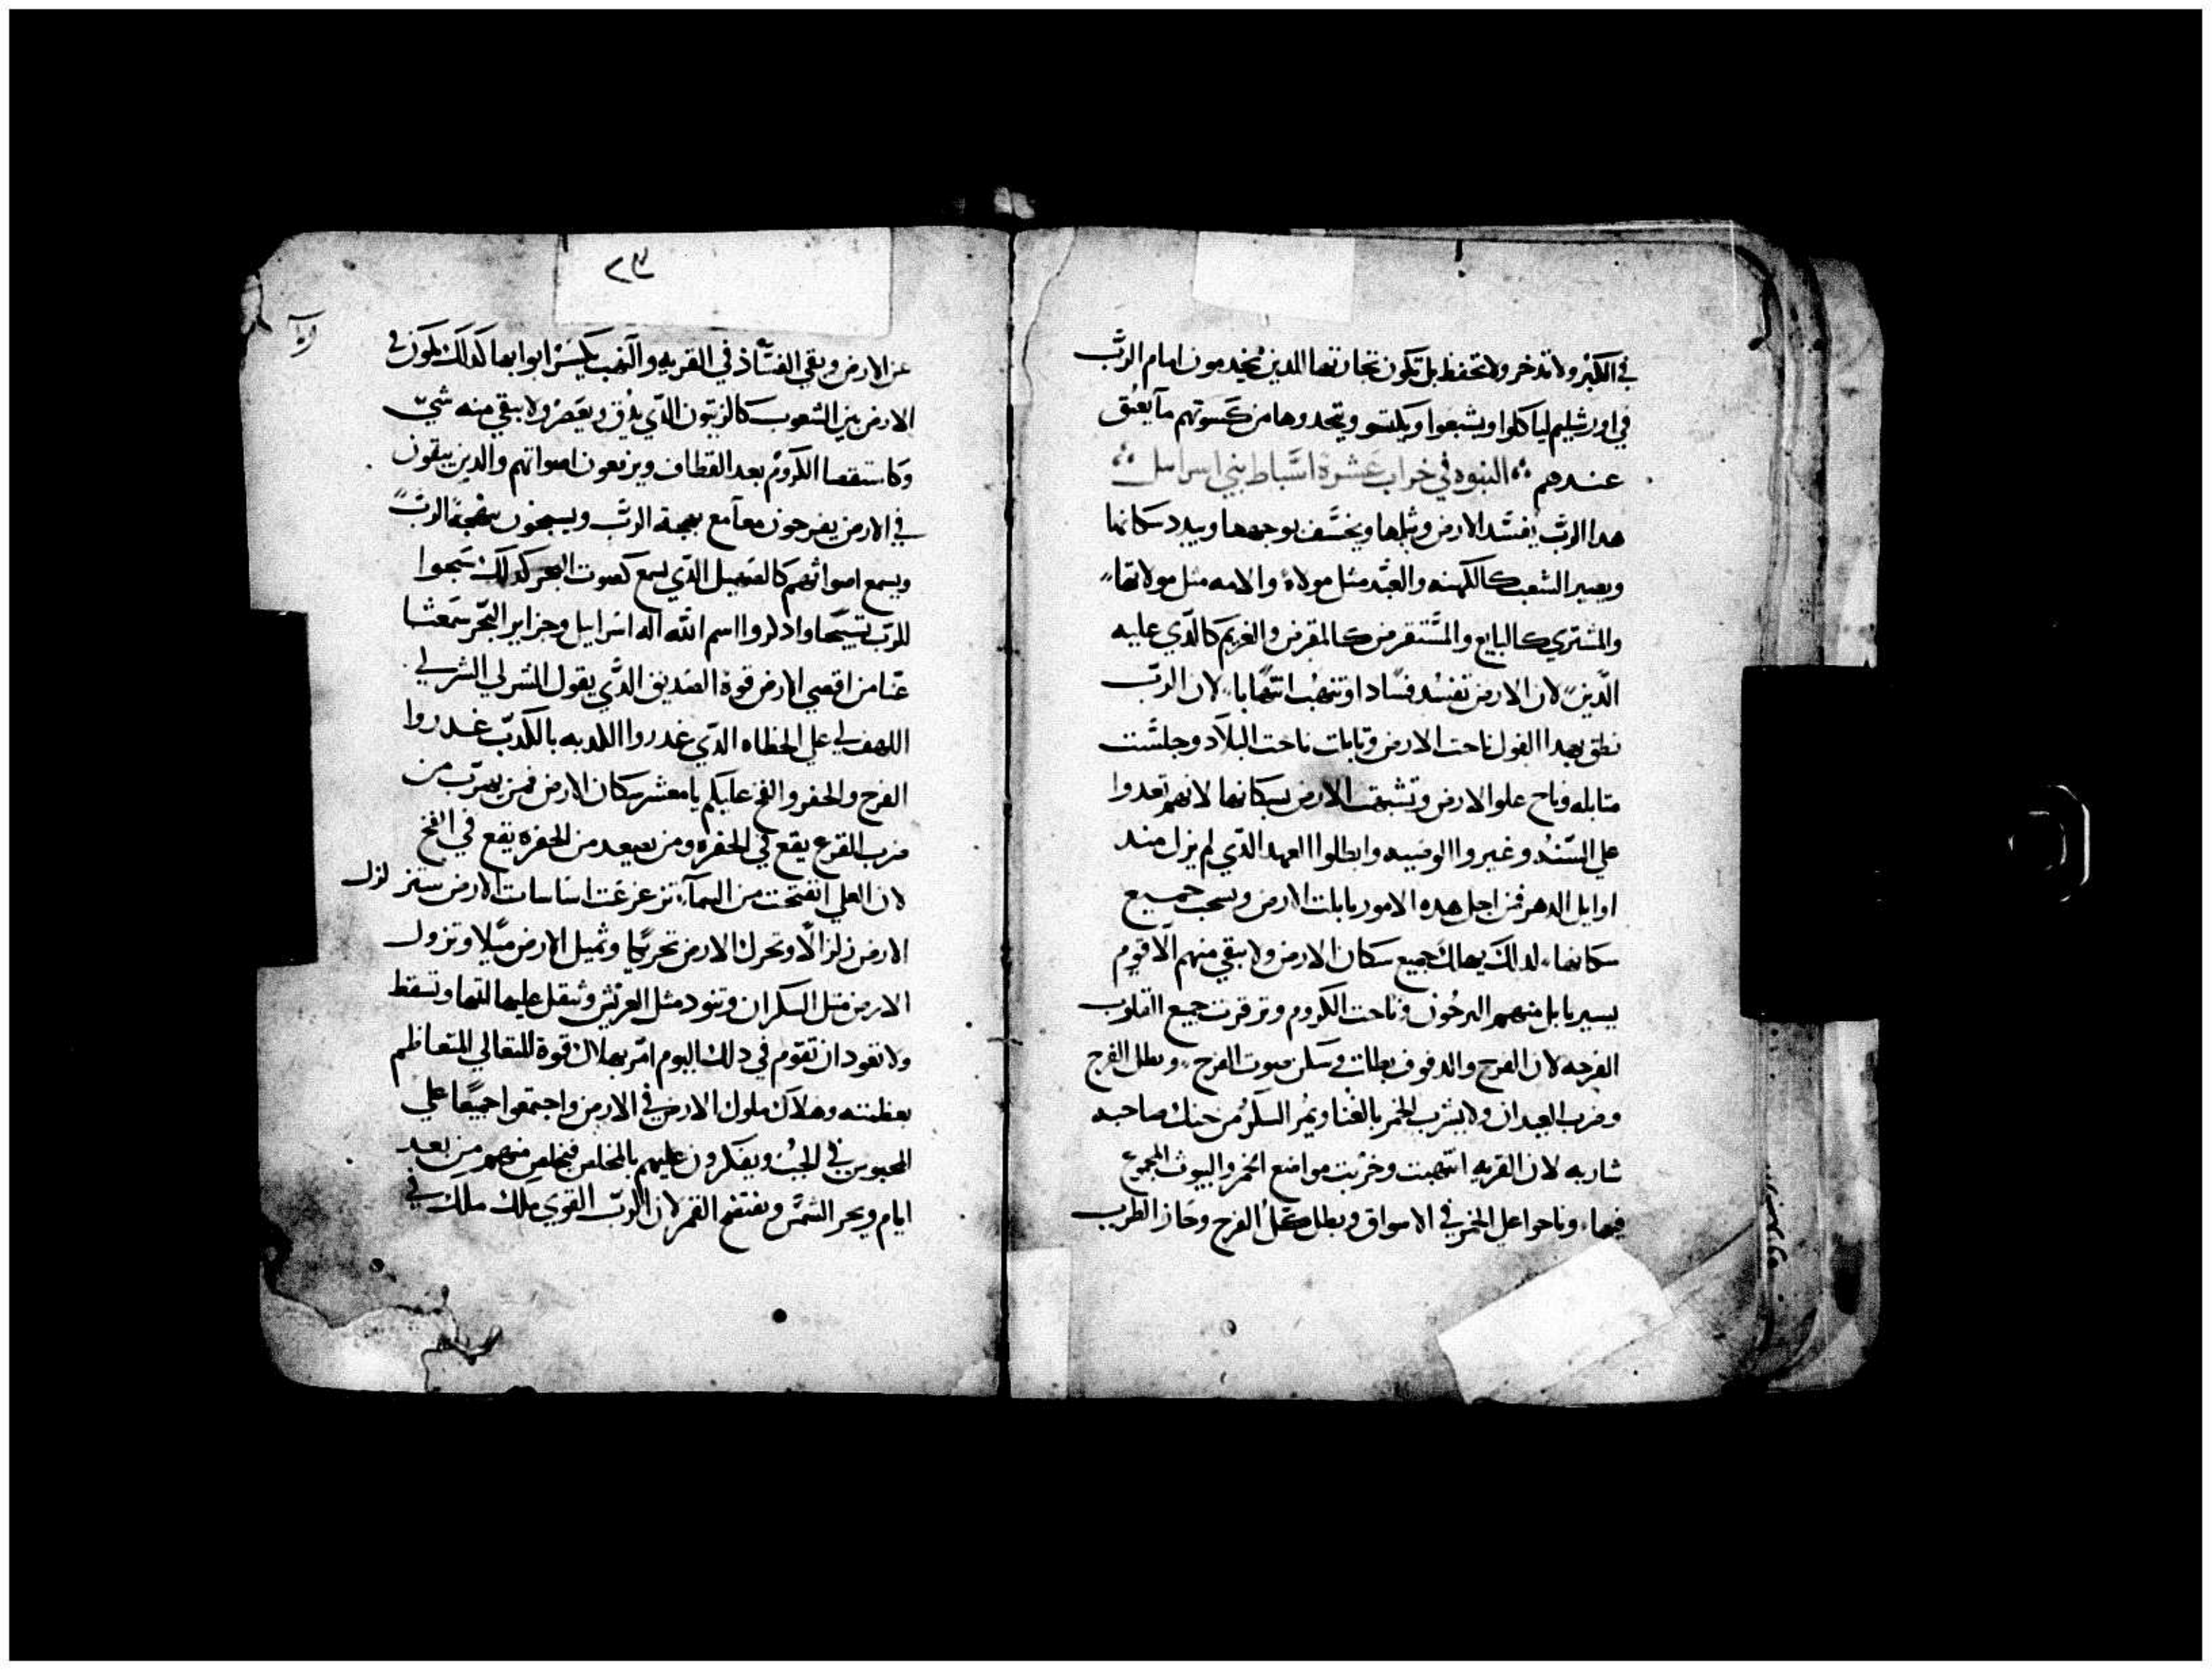 في الكبر ولا تدخر ولا تحفظ بل تكون تجارتها للدين يخدمون امام الرب
في اورشليم لياكلوا ويشبعوا ويكتسو ويتخدوها من كسوتهم ما يعتق
عندهم النبوه في خراب عشرة اسباط بني اسراييل
هدا الرب يفسد الارض وثلها ويخسف بوجهها ويبدد سكانها
ويصير الشعب كالكهنه والعبد مثل مولاه والامه مثل مولاتها
والمشتري كالبايع والمستقرض كالمقرض والغريم كالدي عليه
الدين لان الارض تفسد فسادا وتنهب انتهابا لان الرب
نطق بهدا القول ناحت الارض وتابلت ناحت البلاد وجلست
متابله وناح علو الارض وتشبهت الارض بسكانها لانهم تعدوا
علي السنه وغيروا الوصيه وابطلوا العهد الدي لم يزل مند
اوايل الدهر فمن اجل هده الامور تابلت الارض وسحب جميع
سكانها لدلك يهلك جميع سكان الارض ولا يبقي منهم الا قوم
يسير تابل منهم البرحون وناحت الكروم وترقرت جميع القلوب
الفرحه لان الفرح والدفوف بطلت وسكن صوت الفرح وبطل الفرح
وضرب العيدان ولا يشرب الخمر بالغنا ويمر السكر من حنك صاحبه
شاربه لان القريه انتهبت وخربت مواضع الخمر والبيوت المجمع
فيها وناحوا علي الخمر في الاسواق وبطل كل الفرح وجاز الطرب
٢٣
عن الارض وبقي الفساد في القريه والنهب يكسر ابوابها كدلك يكون في
الارض بين الشعوب كالزيتون الدي يدق ويعصر ولا يبقي منه شي
وكاستقصا الكروم بعد القطاف ويرفعون اصواتهم والدين يبقون
في الارض يفرحون معا مع بهجة الرب ويسبحون ببهجة الرب
ويسمع اصواتهم كالصهيل الدي يسمع كصوت البحر كدلك سبحوا
للرب تسبيحا وادكروا اسم الله اله اسراييل وجزاير البحر سمعنا
عنا من اقصي الارض قوة الصديق الدي يقول السر لي السر لي
اللهف لي علي الخطاه الدي غدروا الكدبه بالكدب غدروا
الفرح والحفر والفخ عليكم يا معشر سكان الارض فمن يهرب من
ضرب القرع يقع في الحفره ومن يصعد من الحفره يقع في الفخ
لان العلي انفتحت من السما تزعزعت اساسات الارض ستزلزل
الارض زلزالا وتحرك الارض تحريكا وتميل الارض ميلا وتزول
الارض مثل السكران وتنود مثل العرش وثقل عليها اثمها وتسقط
ولا تعود ان تقوم في دلك اليوم امر بهلاك قوة المتعالي المتعاظم
بعظمته وهلاك ملوك الارض في الارض واجتمعوا جميعا علي
المحبوس في الجب ويفكرون عليهم بالمخلص فيخلص منهم من بعد
ايام ويحر الشمس ويفتضح القمر لان الرب القوي ملك ملك في